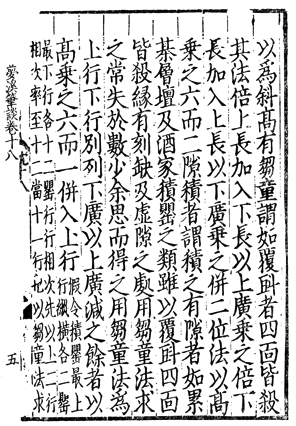 以為斜高有芻童謂如覆㪷者四面皆殺
其法倍上長加入下長以上廣乘之倍下
長加入上長以下廣乘之併二位法以高
乘之六而二隙積者謂積之有隙者如累
棊層壇及酒家積罌之類雖以覆㪷四面
皆殺緣有刻缺及虛隙之處用芻童法求
之常失於數少余思而得之用芻童法為
上行下行別列下廣以上廣減之餘者以
高乘之六而一併入上行
假令積罌最上
行縱橫各二罌
最下行各十二罌行行相次先以上二行
相次率至十二當十一行也以芻童法求
夢溪筆談卷十八
五